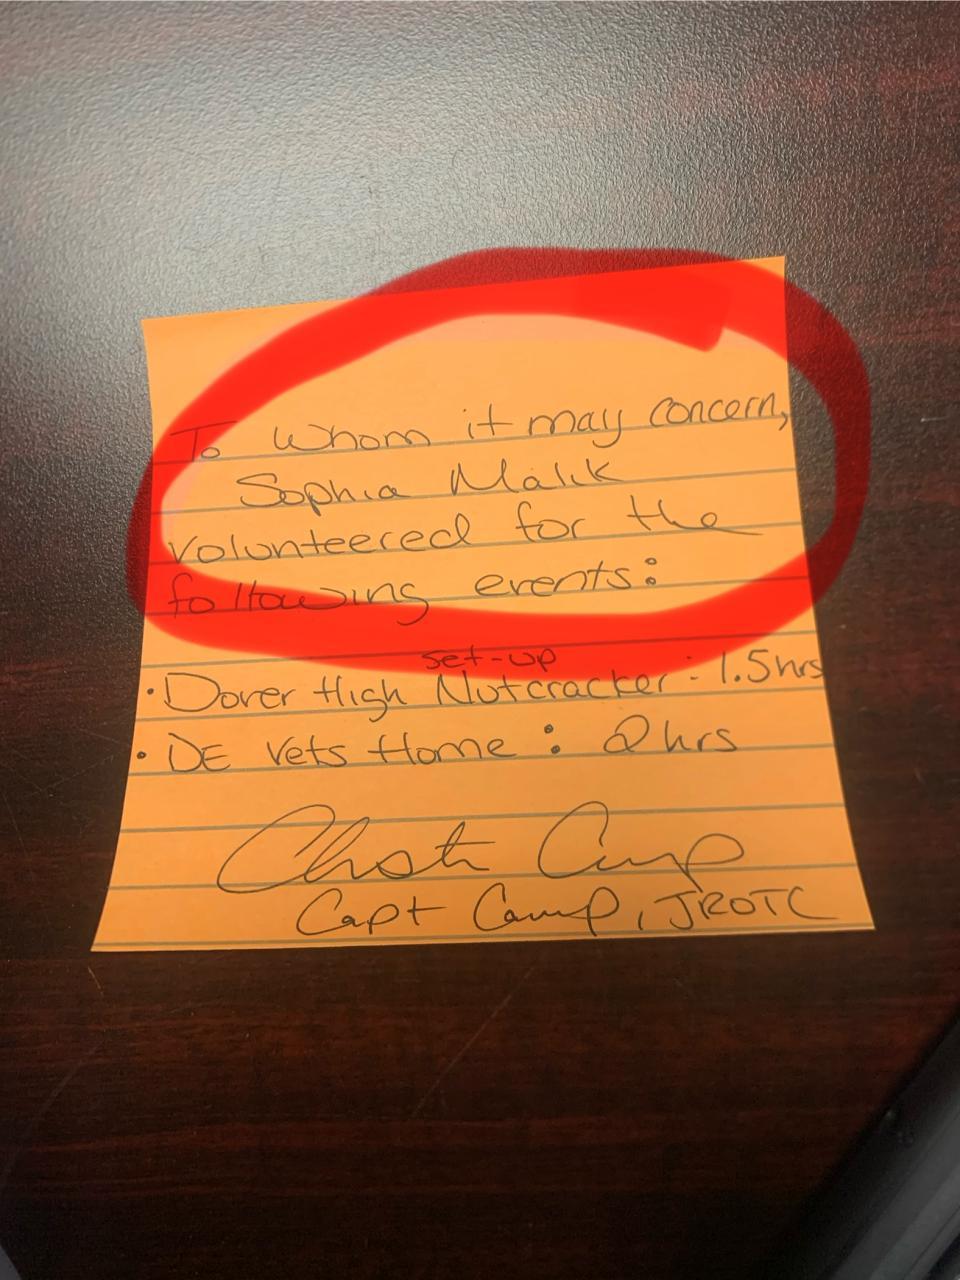 To whom it may concern,
Sophia Malik
volunteered for the
following events:
set-up
• Dover High Nutcracker : 1.5hrs
• DE Vets Home : 2 hrs
Capt Camp, JROTC